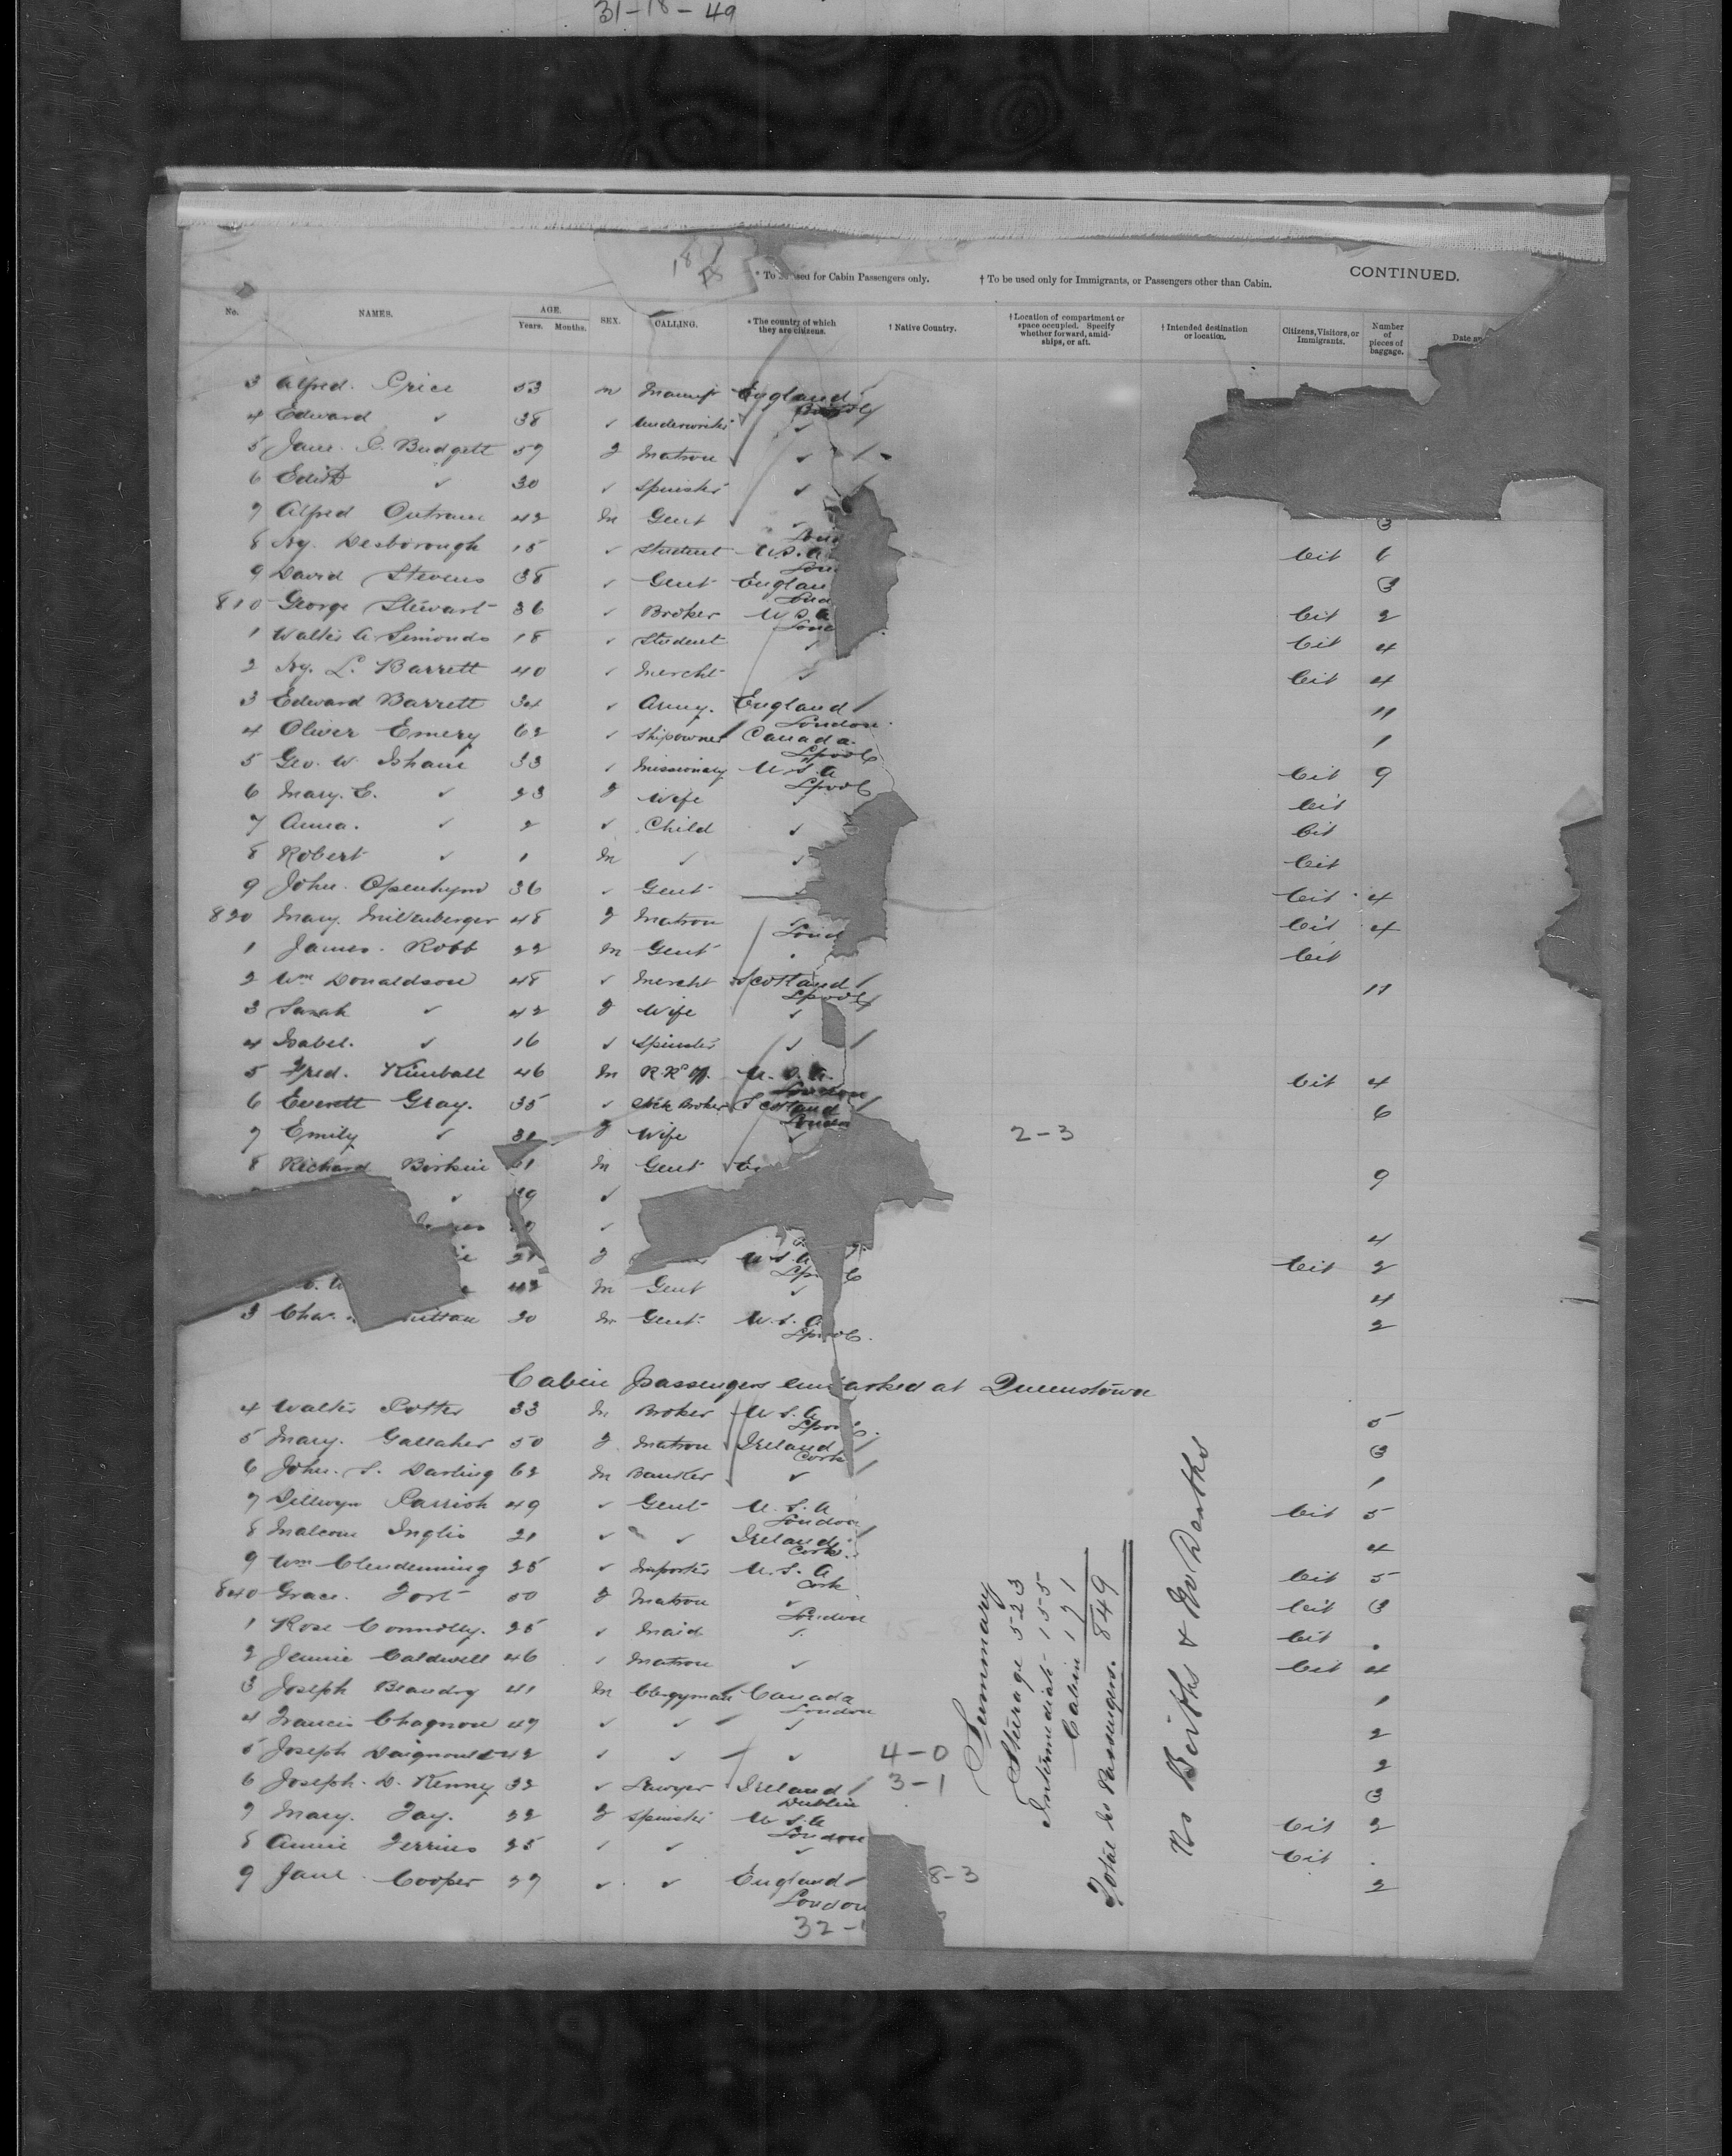 31-18-49
* To be used for Cabin Passengers only. † To be used only for Immigrants, or Passengers other than Cabin. CONTINUED.
No. NAMES. AGE. Years. Months. SEX. CALLING. * The country of which they are citizens. † Native Country. † Location of compartment or space occupied. Specify whether forward, amidships, or aft. † Intended destination or location. Citizens, Visitors, or Immigrants. Number of pieces of baggage. Date an
3 Alfred. Price 53 m England
4 Edward ✓ 38 ✓ Underwriter ✓
5 Jane. C. Budgett 59 F Matron ✓
6 Edith ✓ 30 ✓ Spinster ✓
7 Alfred Outram 42 M Gent ✓ 3
8 Hy. Desborough 15 ✓ Student U.S.A Cit 6
9 David Stevens 38 ✓ Gent Englan 3
810 George Stewart 36 ✓ Broker U S A Cit 2
1 Walter A Simonds 18 ✓ Student ✓ Cit 4
2 Hy. L. Barrett 40 ✓ Mercht ✓ Cit 4
3 Edward Barrett 34 ✓ Army. England 11
London.
4 Oliver Emery 62 ✓ Shipowner Canada. 1
Lpool
5 Geo. W. Isham 33 ✓ Missionary U.S.A Cit 9
Lpool
6 Mary. E. ✓ 23 F Wife ✓ Cit
7 Anna. ✓ 2 ✓ Child ✓ Cit
8 Robert ✓ 1 M ✓ ✓ Cit
9 John. Openhym 36 ✓ Gent Cit 4
820 Mary. Miltenberger 48 F Matron Cit 4
Lond
1 James. Robb 22 M Gent Cit
2 Wm Donaldson 48 ✓ Mercht Scotland 11
Lpool
3 Sarah ✓ 42 F Wife ✓
4 Isabel. ✓ 16 ✓ Spinster ✓
5 Fred. Kimball 46 M R.R. Off. U.S.A. Cit 4
London
6 Everett Gray. 35 ✓ Stock Broker Scotland 6
London
7 Emily ✓ 31 F Wife ✓ 2-3
8 Richard Birkin M Gent 9
✓ ✓
✓ 4
F U S A Cit 2
42 M Gent ✓ 4
3 Chas. 30 M Gent. U.S.A 2
Lpool.
Cabin passengers embarked at Queenstown
4 Walter Potter 33 M Broker U S. A 5
Lpool.
5 Mary. Gallaher 50 F. Matron Ireland 3
Cork
6 John. S. Darling 62 M Banker ✓ 1
7 Dillwyn Parrish 49 ✓ Gent U.S.A Cit 5
London
8 Malcom Inglis 21 ✓ ✓ Ireland 4
Cork.
9 Wm Clendenning 25 ✓ Importer U.S.A Cit 5
Cork
840 Grace. Fort 50 F Matron ✓ Cit 3
London
1 Rose Connolly. 25 ✓ Maid ✓ Cit .
2 Jennie Caldwell 46 ✓ Matron ✓ Cit 4
3 Joseph Beaudry 41 M Clergyman Canada 1
London
4 Francis Chagnon 49 ✓ ✓ ✓ 2
5 Joseph Daignault 42 ✓ ✓ ✓ 4-0 2
6 Joseph. D. Kenny 32 ✓ Lawyer Ireland 3-1 3
Dublin
7 Mary. Fay. 22 F Spinster U S.A Cit 2
London
8 Annie Ferrins 25 ✓ ✓ ✓ Cit .
9 Jane Cooper 27 ✓ ✓ England 2
London
32-
Summary
Steerage 523
Intermediate 155
Cabin 171
Total No Passengers. 849
No Births & No Deaths